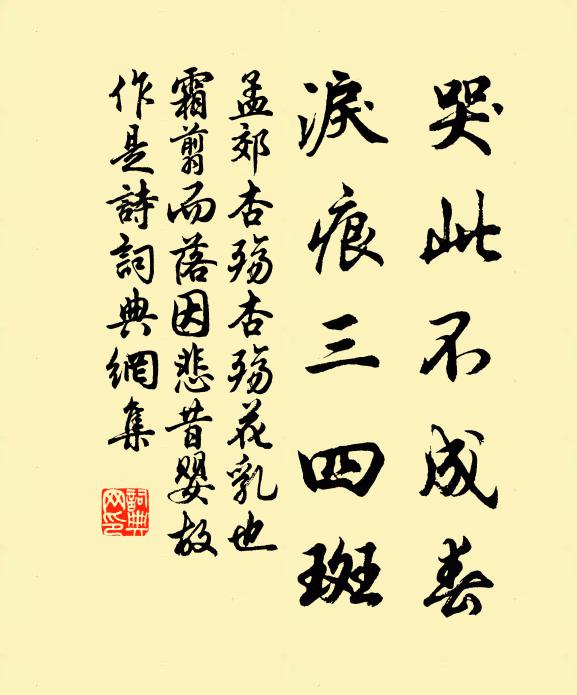 哭此不成春
淚痕三四斑
孟郊杏殤杏殤花乳也
霜翦而落因悲昔嬰故
作是詩詞典網集
詞典网印